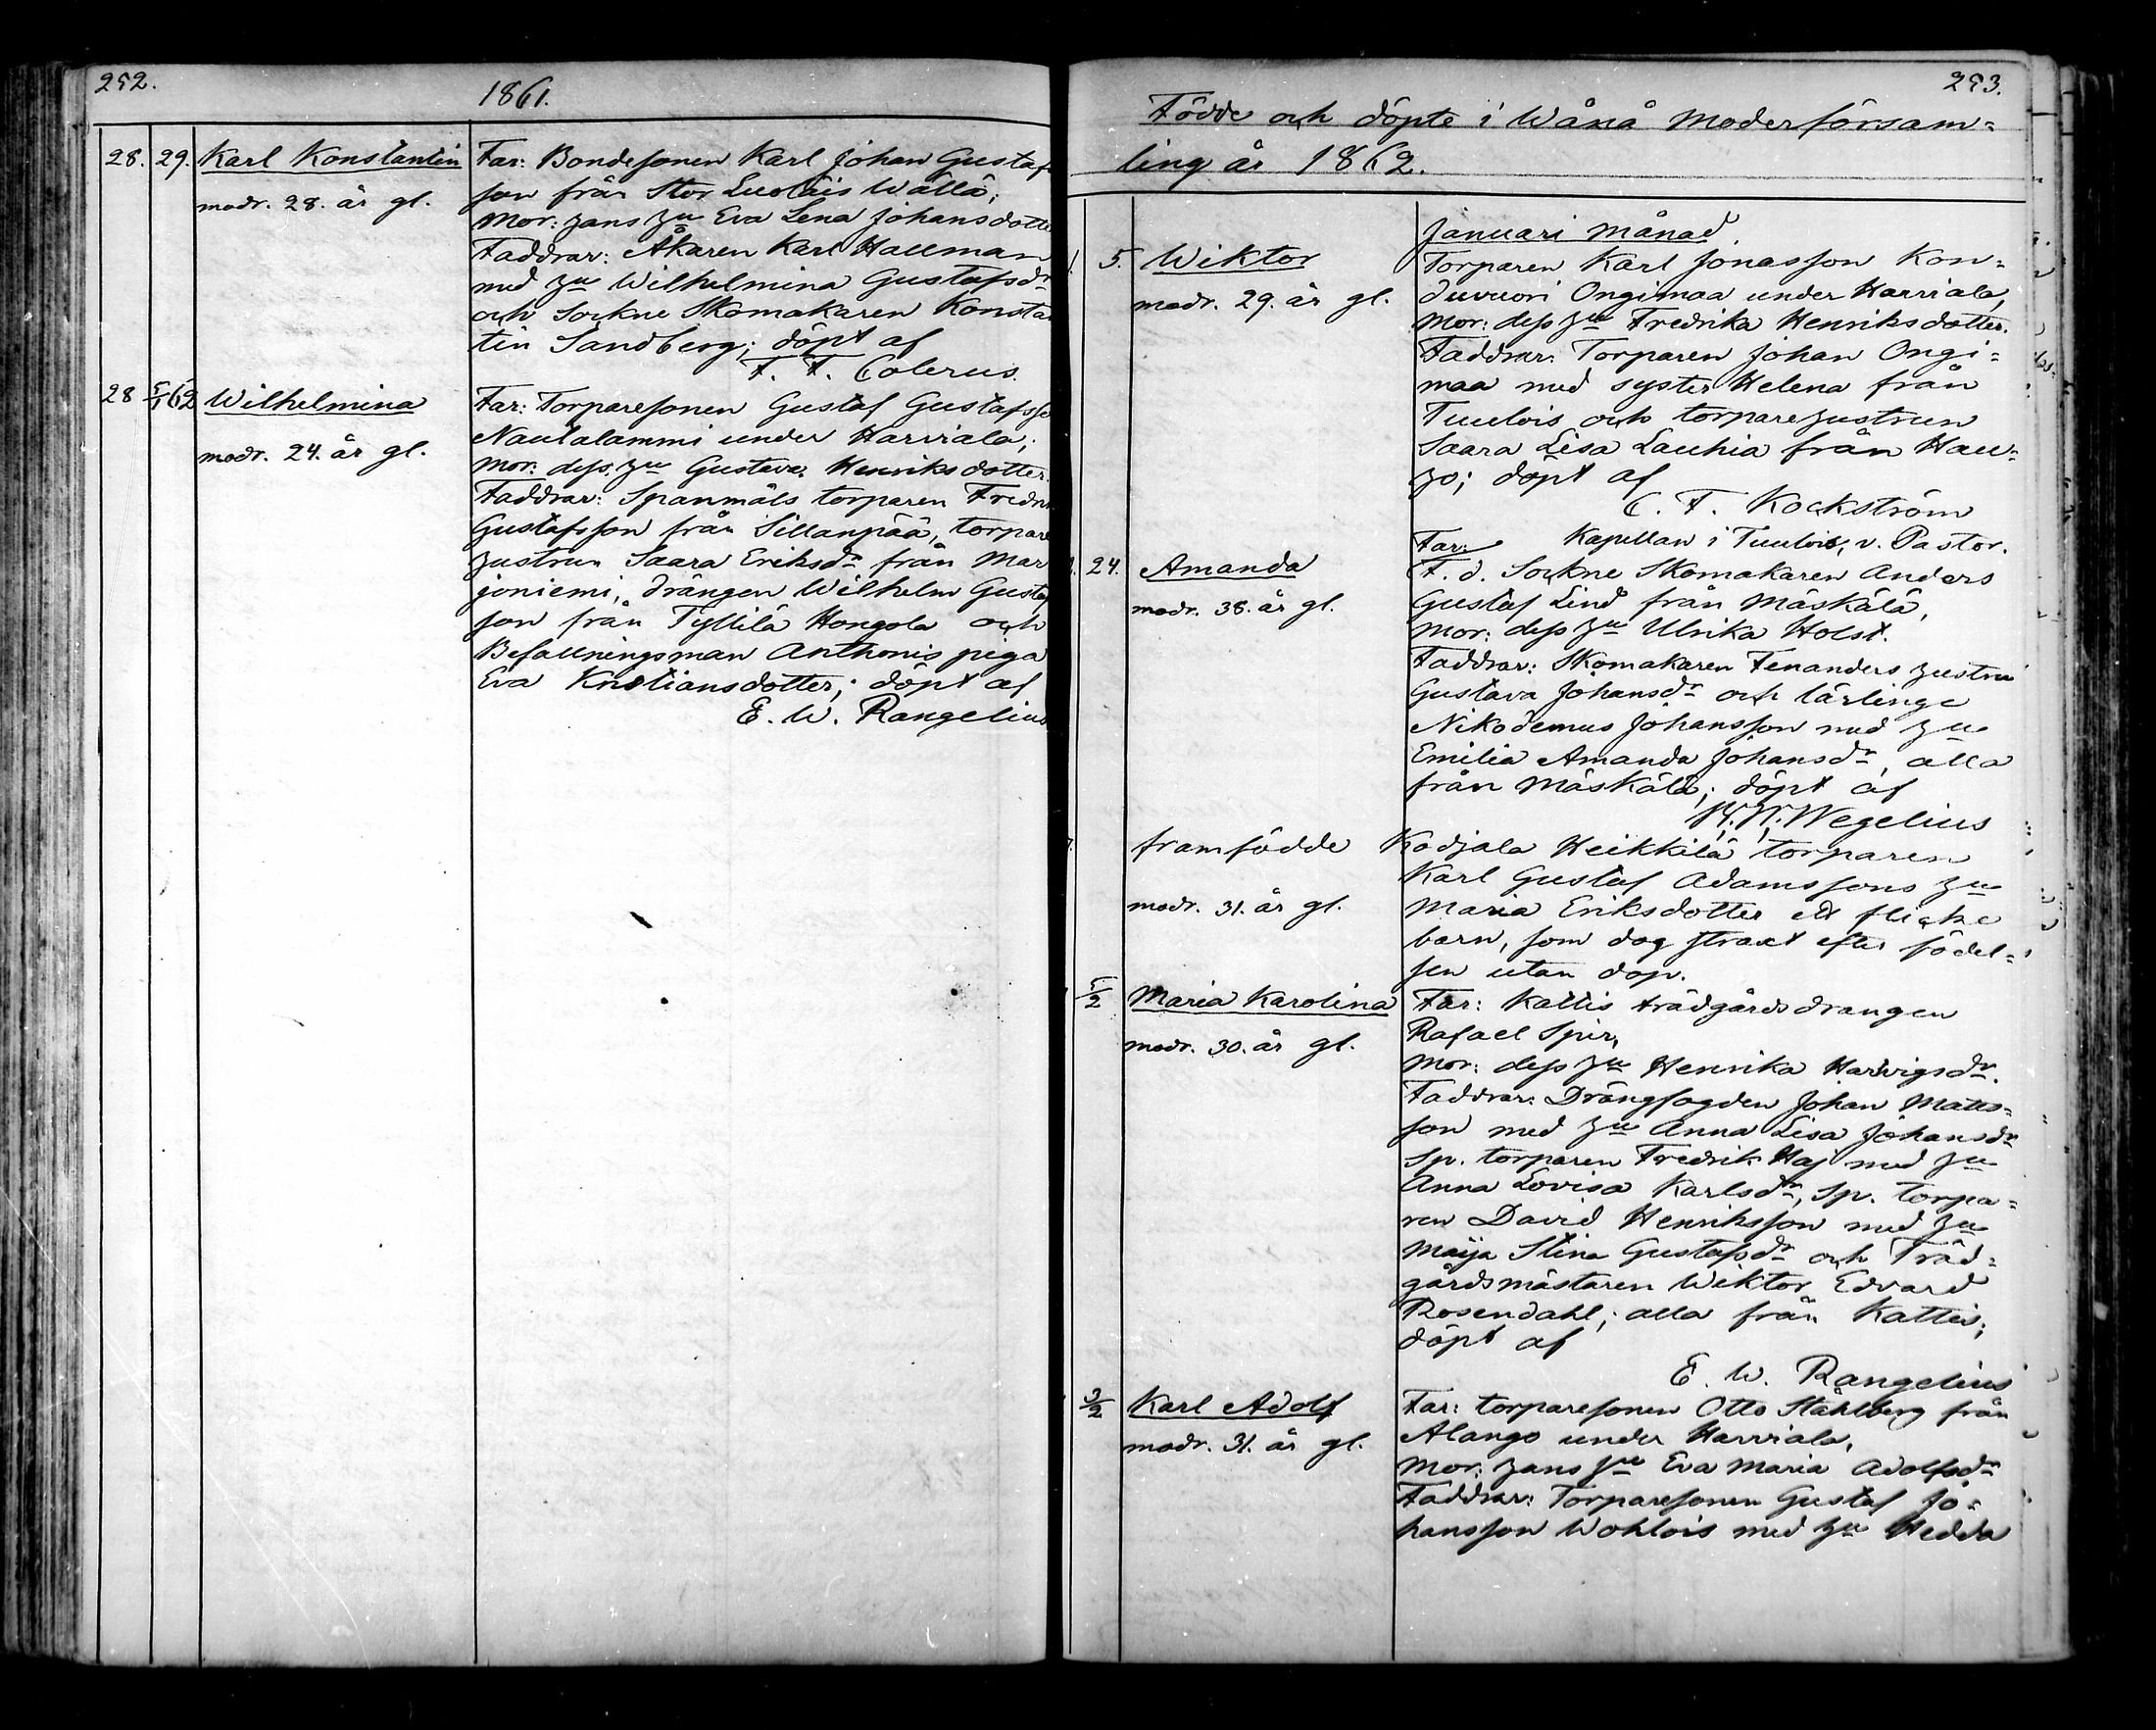 252.
1861.
28. 29. Karl Konstantin
modr. 28. år gl.
Far: Bondesonen Karl Johan Gustaf
son från Stor Luolais Wällä;
Mor: Hans Hu Eva Lena Johansdotte
Faddrar: Åkaren Karl Hallman
med Hu Wilhelmina Gustafsdr
och Sockne Skomakaren Konstan
tin Sandberg; döpt af
F. F. Colerus.
28 5/1 62 Wilhelmina
modr. 24. år gl.
Far: Torparesonen Gustaf Gustafsso
Nautalammi under Harviala;
Mor: dess Hu Gustava Henriksdotter.
Faddrar: Spanmåls torparen Fredri
Gustafsson från Sillanpää, torpare
hustrun Saara Eriksdr från Mar
joniemi, drängen Wilhelm Gustaf
son från Tyllilä Hongola och
Befallningsman Anthonis piga
Eva Kristiansdotter; döpt af
E. W. Rangelius
253.
Födde och döpte i Wånå Moderförsam-
ling år 1862.
Januari Månad.
5. Wiktor
modr. 29. år gl.
Torparen Karl Jonasson Kon-
duvuori Ongimaa under Harviala,
Mor: dess Hu Fredrika Henriksdotter.
Faddrar: Torparen Johan Ongi-
maa med syster Helena från
Tuulois och torparehustrun
Saara Lisa Lauhia från Hau-
ho; döpt af
C. F. Kockström
Kapellan i Tuulois, v. Pastor.
24. Amanda
modr. 38. år gl.
Far:
F. d. Sockne Skomakaren Anders
Gustaf Lind från Mäskälä,
Mor: dess Hu Ulrika Holst.
Faddrar: Skomakaren Fenanders hustru
Gustava Johansdr och lärlinge
Nikodemus Johansson med Hu
Emilia Amanda Johansdr, alla
från Mäskälä; döpt af
Wegelius
framfödde
modr. 31. år gl.
Kodjala Heikkilä torparen
Karl Gustaf Adamssons Hu
Maria Eriksdotter ett flicke
barn, som dog straxt efter födel-
sen utan dop.
5/2 Maria Karolina
modr. 30. år gl.
Far: Kattis trädgårdsdrängen
Rafael Spir,
Mor: dess Hu Henrika Harvigsdr.
Faddrar: Drängfogden Johan Matts-
son med Hu Anna Lisa Johansdr
Sp. torparen Fredrik Haj med Hu
Anna Lovisa Karlsdr, Sp. torpa-
ren David Henriksson med Hu
Maija Stina Gustafsdr och Träd-
gårdsmästaren Wiktor Edvard
Rosendahl; alla från Kattis;
döpt af
E. W. Rangelius
3/2 Karl Adolf
modr. 31. år gl.
Far: torparesonen Otto Ståhlberg från
Alango under Harviala,
Mor: Hans Hu Eva Maria Adolfsdr
Faddrar: Torparesonen Gustaf Jo-
hansson Wohlois med Hu Hedda